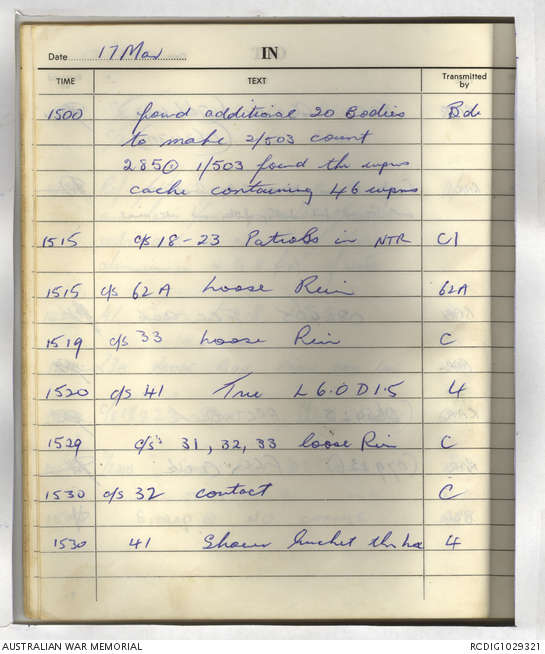 Date 17 Mar IN
TIME TEXT Transmitted by
1500 found additional 20 Bodies Bde
to make 2/503 count
285 1/503 found th wpns
cache containing 46 wpns
1515 c/s 18-23 Patrols in NTR C1
1515 c/s 62A Loose Rein 62A
1519 c/s 33 Loose Rein C
1520 c/s 41 True L 6.0 D 1.5 4
1529 c/s' 31, 32, 33 loose Rein C
1530 c/s 32 contact C
1530 41 bucket 4
AUSTRALIAN WAR MEMORIAL RCDIG1029321